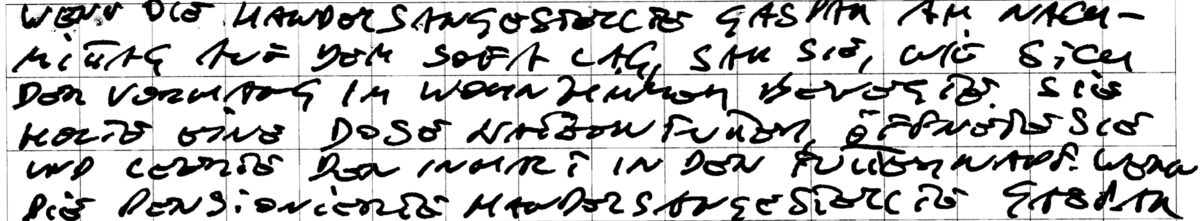 WENN DIE HANDELSANGESTELLTE GASPAR AM NACH-
MITTAG AUF DEM SOFA LAG, SAH SIE, WIE SICH
DER VORHANG IM WOHNZIMMER BEWEGTE. SIE
HOLTE EINE DOSE KATZENFUTTER, ÖFFNETE SIE
UND LEERTE DEN INHALT IN DEN FUTTERNAPF. WENN
DIE PENSIONIERTE HANDELSANGESTELLTE GASPAR